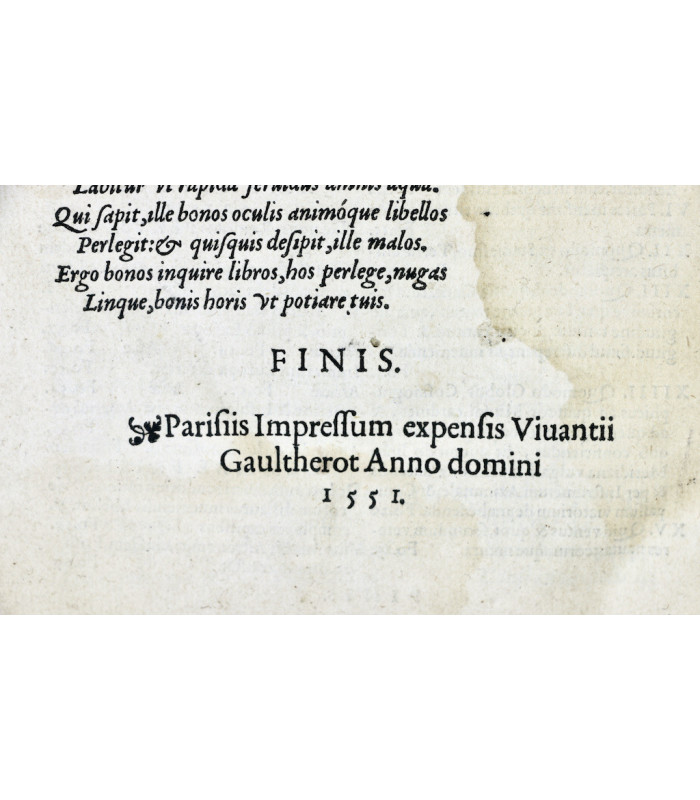 Labitur vt rapida semulus amnis aqua.
Qui ſapit,ille bonos oculis animóque libellos
Perlegit:& quiſquis deſipit,ille malos.
Ergo bonos inquire libros,hos perlege,nugas
Linque,bonis horis vt potiare tuis.
FINIS.
Pariſiis Impreſſum expenſis Viuantii
Gaultherot Anno domini
1551.